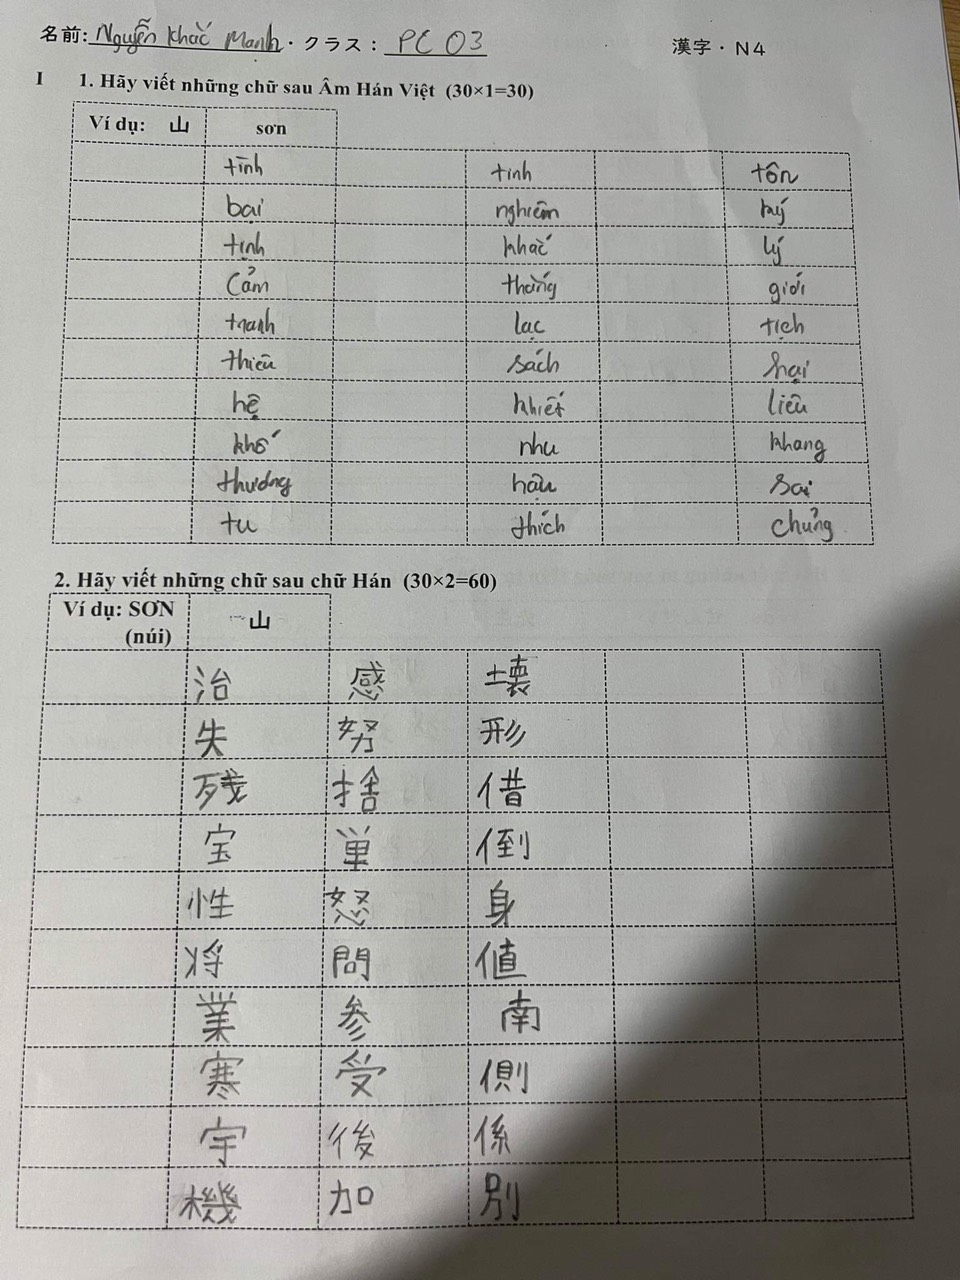 名前: Nguyễn Khắc Manh · クラス : PC 03 漢字・N4
I 1. Hãy viết những chữ sau Âm Hán Việt (30×1=30)
Ví dụ: 山 sơn
tĩnh tinh tôn
bai nghiêm
tịnh khắc lý
Cảm thắng giới
tranh lạc tịch
thiêu sách hại
hệ khiết liêu
khố nhu khang
thương hậu sai
tu thích chủng
2. Hãy viết những chữ sau chữ Hán (30×2=60)
Ví dụ: SƠN 山
(núi)
治 感 壊
失 努 形
残 捨 借
宝 単 倒
性 怒 身
将 問 値
業 参 南
寒 受 側
宇 後 係
機 加 別